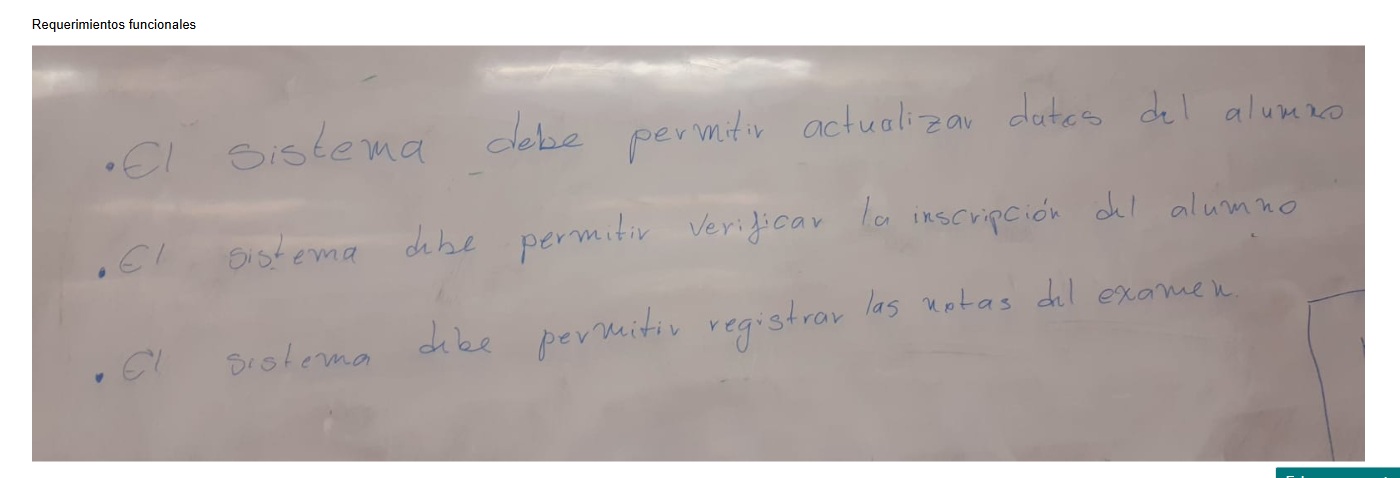 Requerimientos funcionales
• El sistema debe permitir actualizar datos del alumno
• El sistema debe permitir verificar la inscripción del alumno
• El sistema debe permitir registrar las notas del examen.